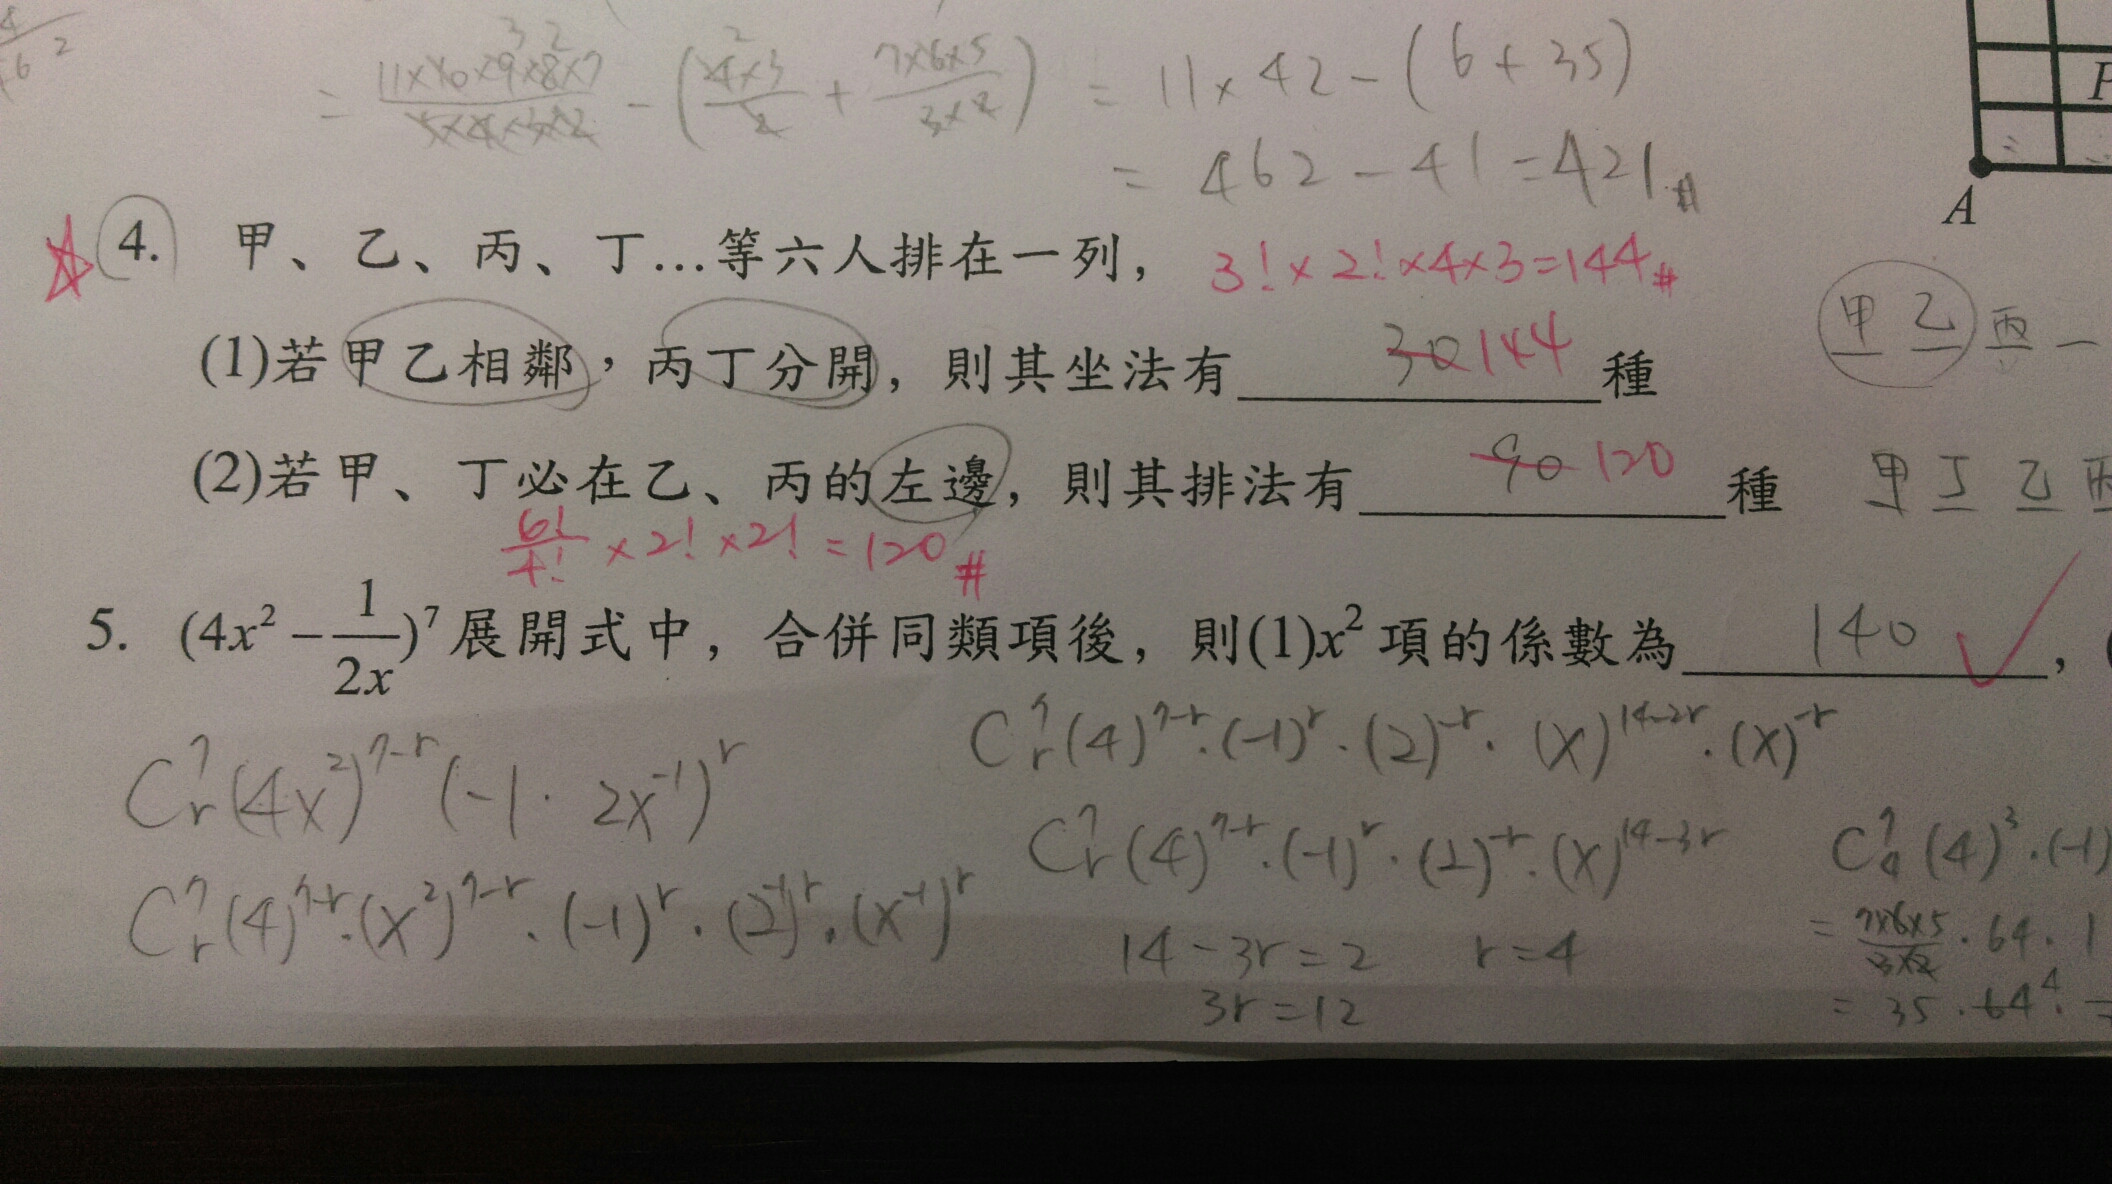 4
6 2
= 11×10×9×8×7 / 5×4×3×2 - (4×3 / 2 + 7×6×5 / 3×2) = 11×42-(6+35)
3 2 2
= 462-41=421#
P
A
4. 甲、乙、丙、丁…等六人排在一列, 3!×2!×4×3=144#
(1)若甲乙相鄰,丙丁分開,則其坐法有 30 144 種
甲 乙 丙
(2)若甲、丁必在乙、丙的左邊,則其排法有 90 120 種 甲 丁 乙 丙
6!/4! ×2!×2! =120#
5. (4x² - 1/2x)⁷展開式中,合併同類項後,則(1)x²項的係數為 140 ,(
C⁷ᵣ(4x²)⁷⁻ʳ(-1· 2x⁻¹)ʳ
C⁷ᵣ(4)⁷⁻ʳ·(x²)⁷⁻ʳ·(-1)ʳ·(2⁻¹)ʳ·(x⁻¹)ʳ
C⁷ᵣ(4)⁷⁻ʳ·(-1)ʳ·(2)⁻ʳ· (x)¹⁴⁻²ʳ·(x)⁻ʳ
C⁷ᵣ(4)⁷⁻ʳ·(-1)ʳ·(2)⁻ʳ·(x)¹⁴⁻³ʳ
14-3r=2 r=4
3r=12
C⁷₄(4)³·(-1)
= 7×6×5 / 3×2 ·64·1
= 35·64⁴·